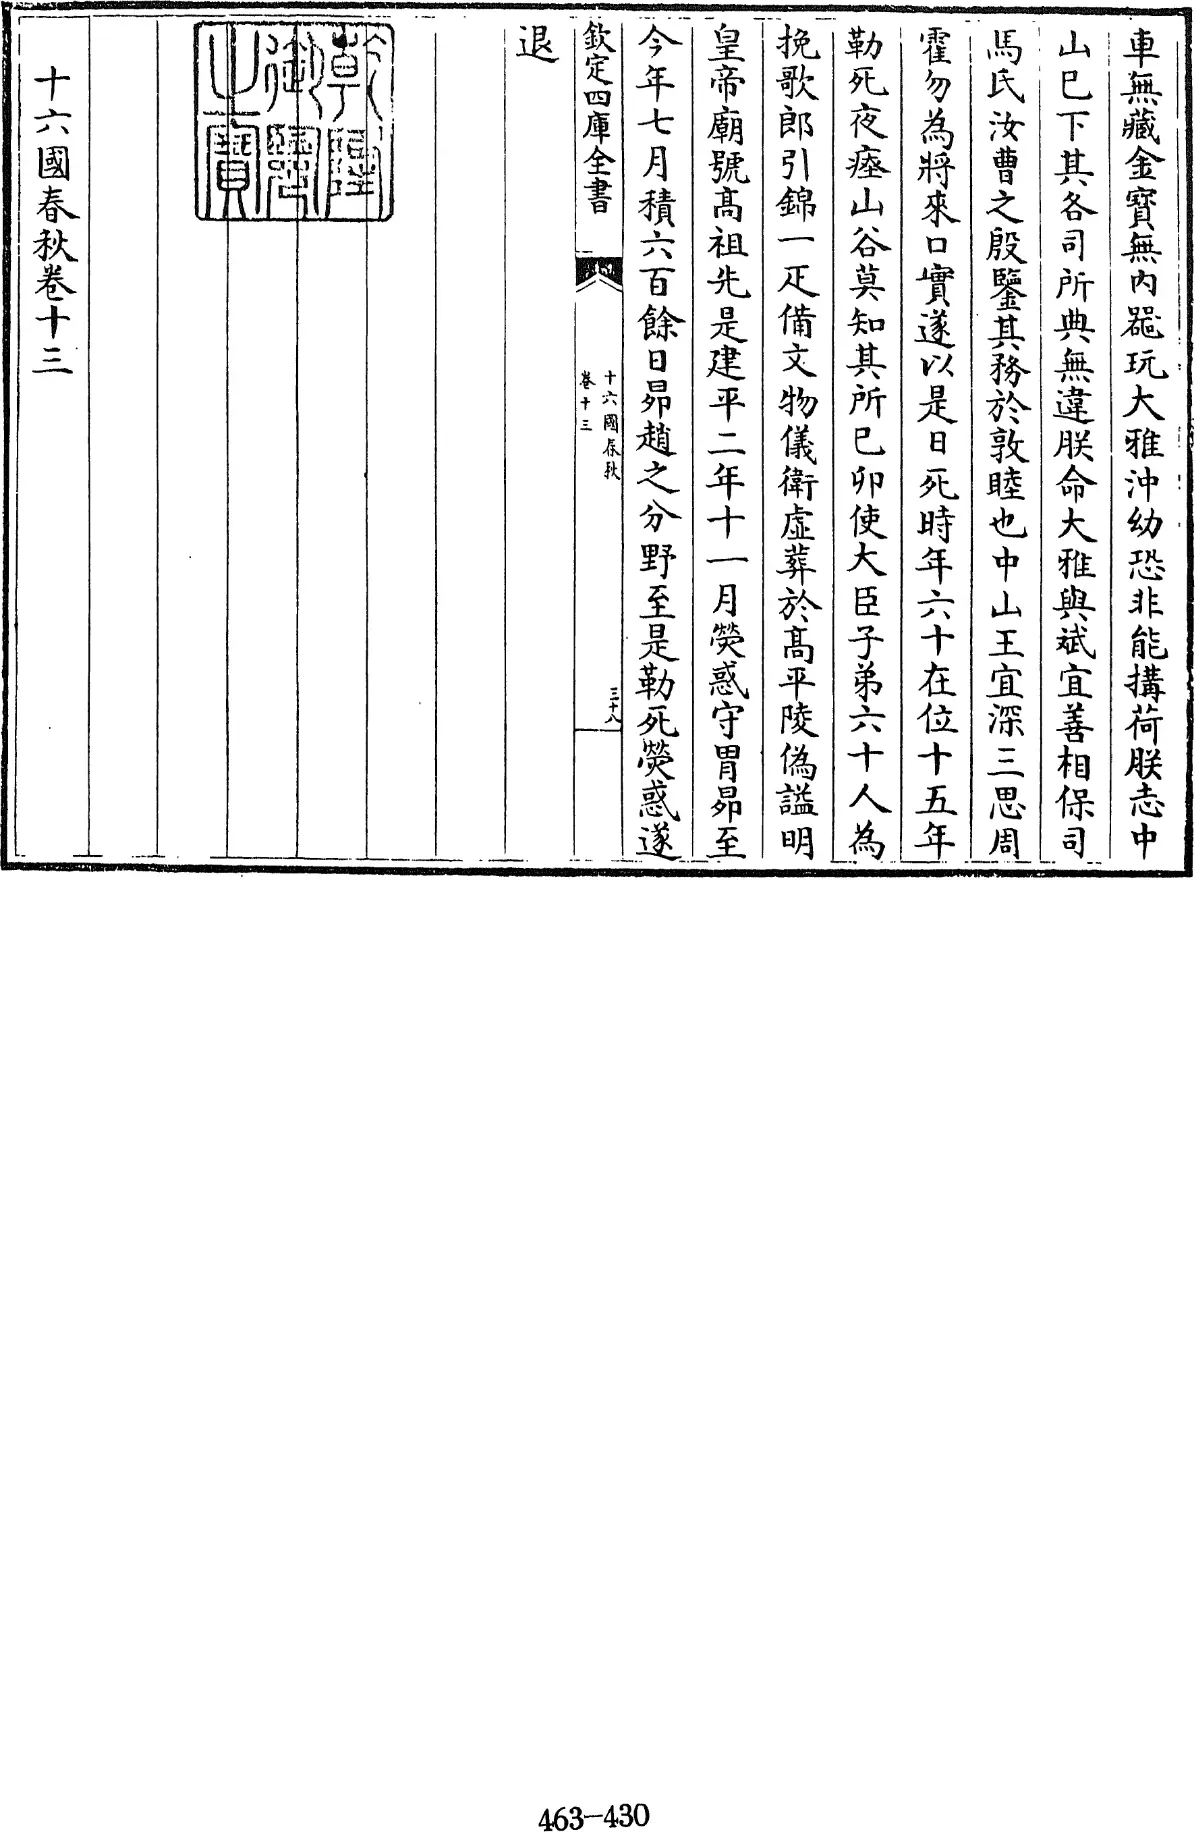 車無藏金寶無内噐玩大雅沖幼恐非能搆荷朕志中
山巳下其各司所典無違朕命大雅與斌宜善相保司
馬氏汝曹之殷鑒其務於敦睦也中山王宜深三思周
霍勿為將來口實遂以是日死時年六十在位十五年
勒死夜瘞山谷莫知其所巳卯使大臣子弟六十人為
挽歌郎引錦一疋備文物儀衛虛葬於髙平陵偽諡明
皇帝廟號髙祖先是建平二年十一月熒惑守胃昴至
今年七月積六百餘日昴趙之分野至是勒死熒惑遂
欽定四庫全書
十六國春秋
卷十三
三十八
退
乾隆
御覽
之寶
十六國春秋卷十三
463-430